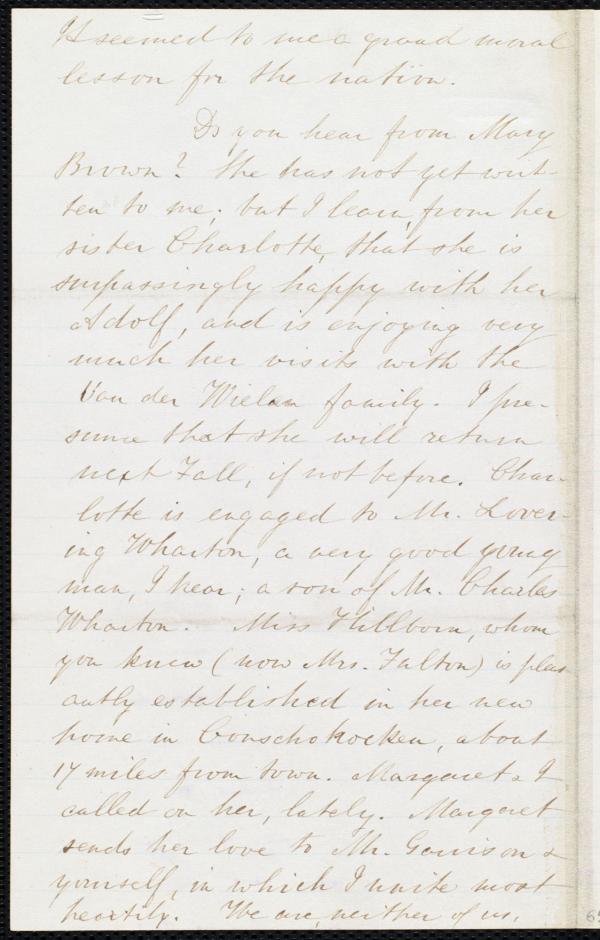 It seemed to me a grand moral
lesson for the nation.
Do you hear from Mary
Brown? She has not yet writ-
ten to me; but I learn, from her
sister Charlotte, that she is
surpassingly happy with her
Adolf, and is enjoying very
much her visits with the
Van der Wielen family. I pre-
sume that she will return
next Fall, if not before. Char-
lotte is engaged to Mr. Lover-
ing Wharton, a very good young
man, I hear; a son of Mr. Charles
Wharton. Miss Hillborn, whom
you knew (now Mrs. Fulton) is pleas-
antly established in her new
home in Conschohocken, about
17 miles from town. Margaret & I
called on her, lately. Margaret
sends her love to Mr. Garrison &
yourself, in which I unite most
heartily. We are, neither of us,